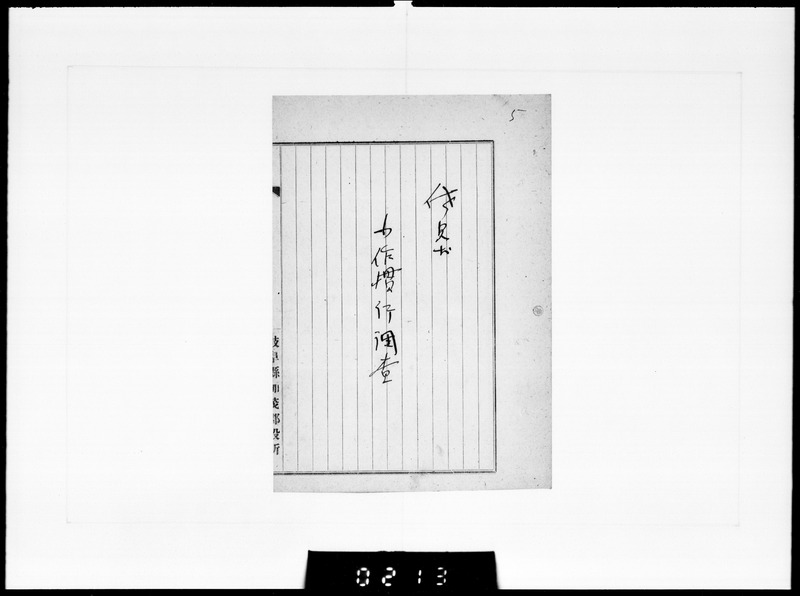 5
小作慣行調査
岐阜縣加茂郡役所
0213